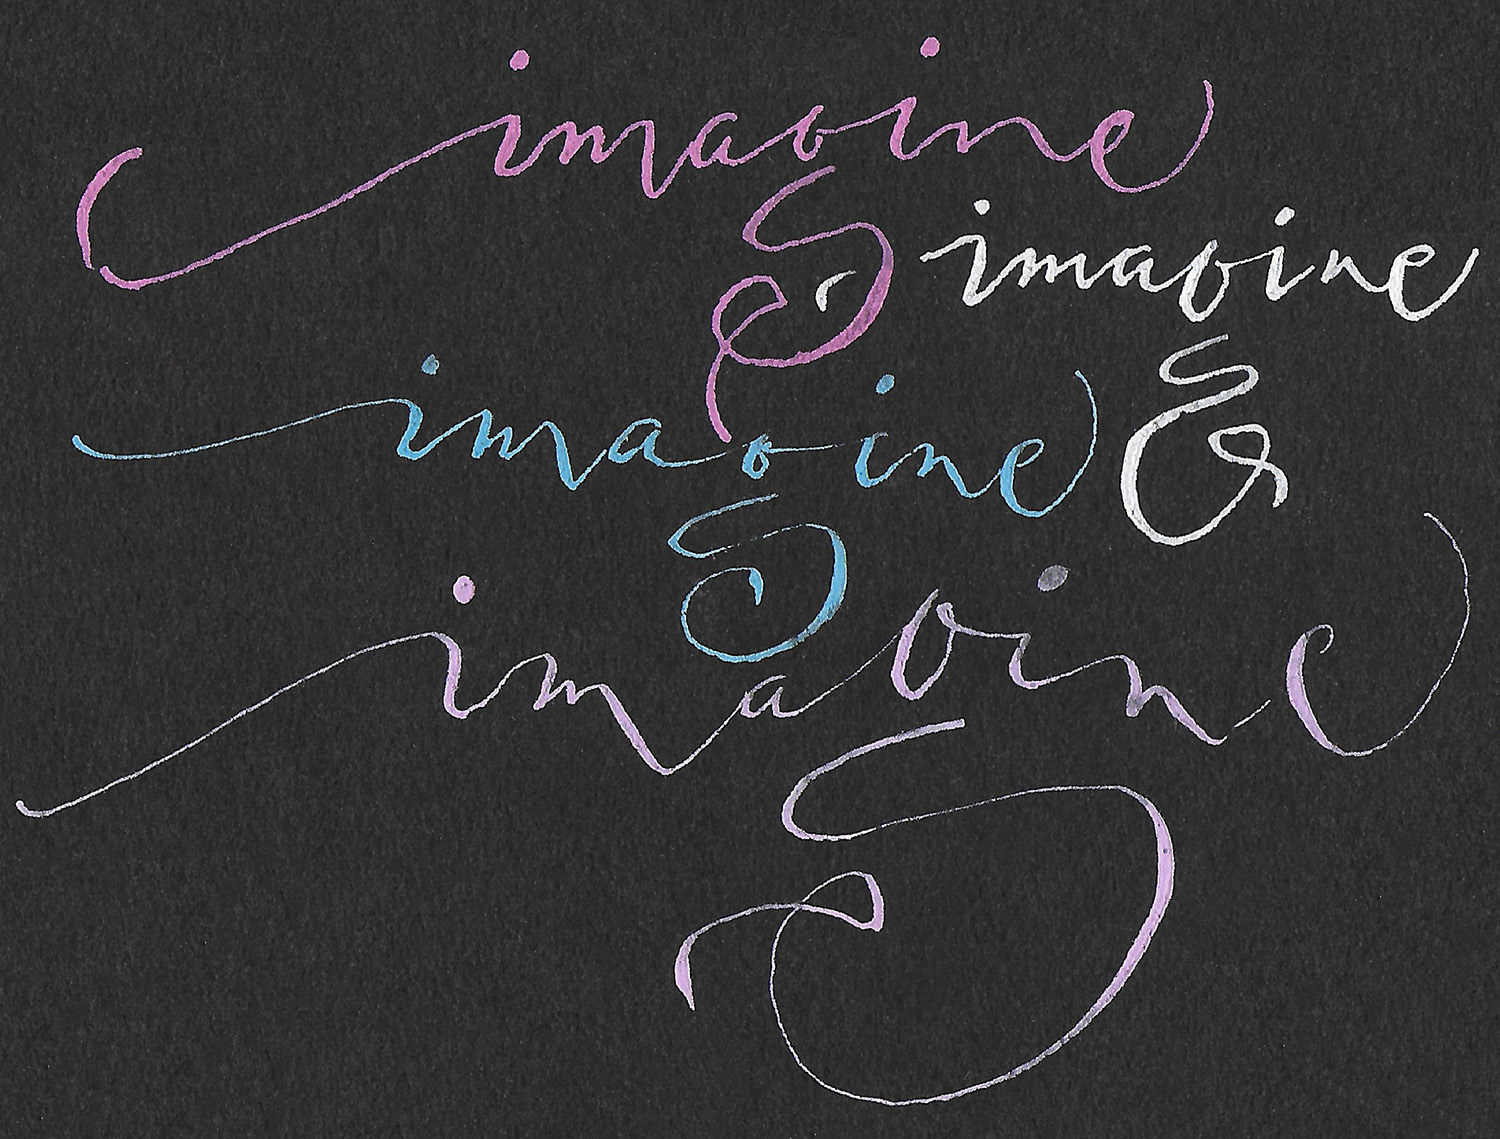 imagine
imagine
imagine
imagine